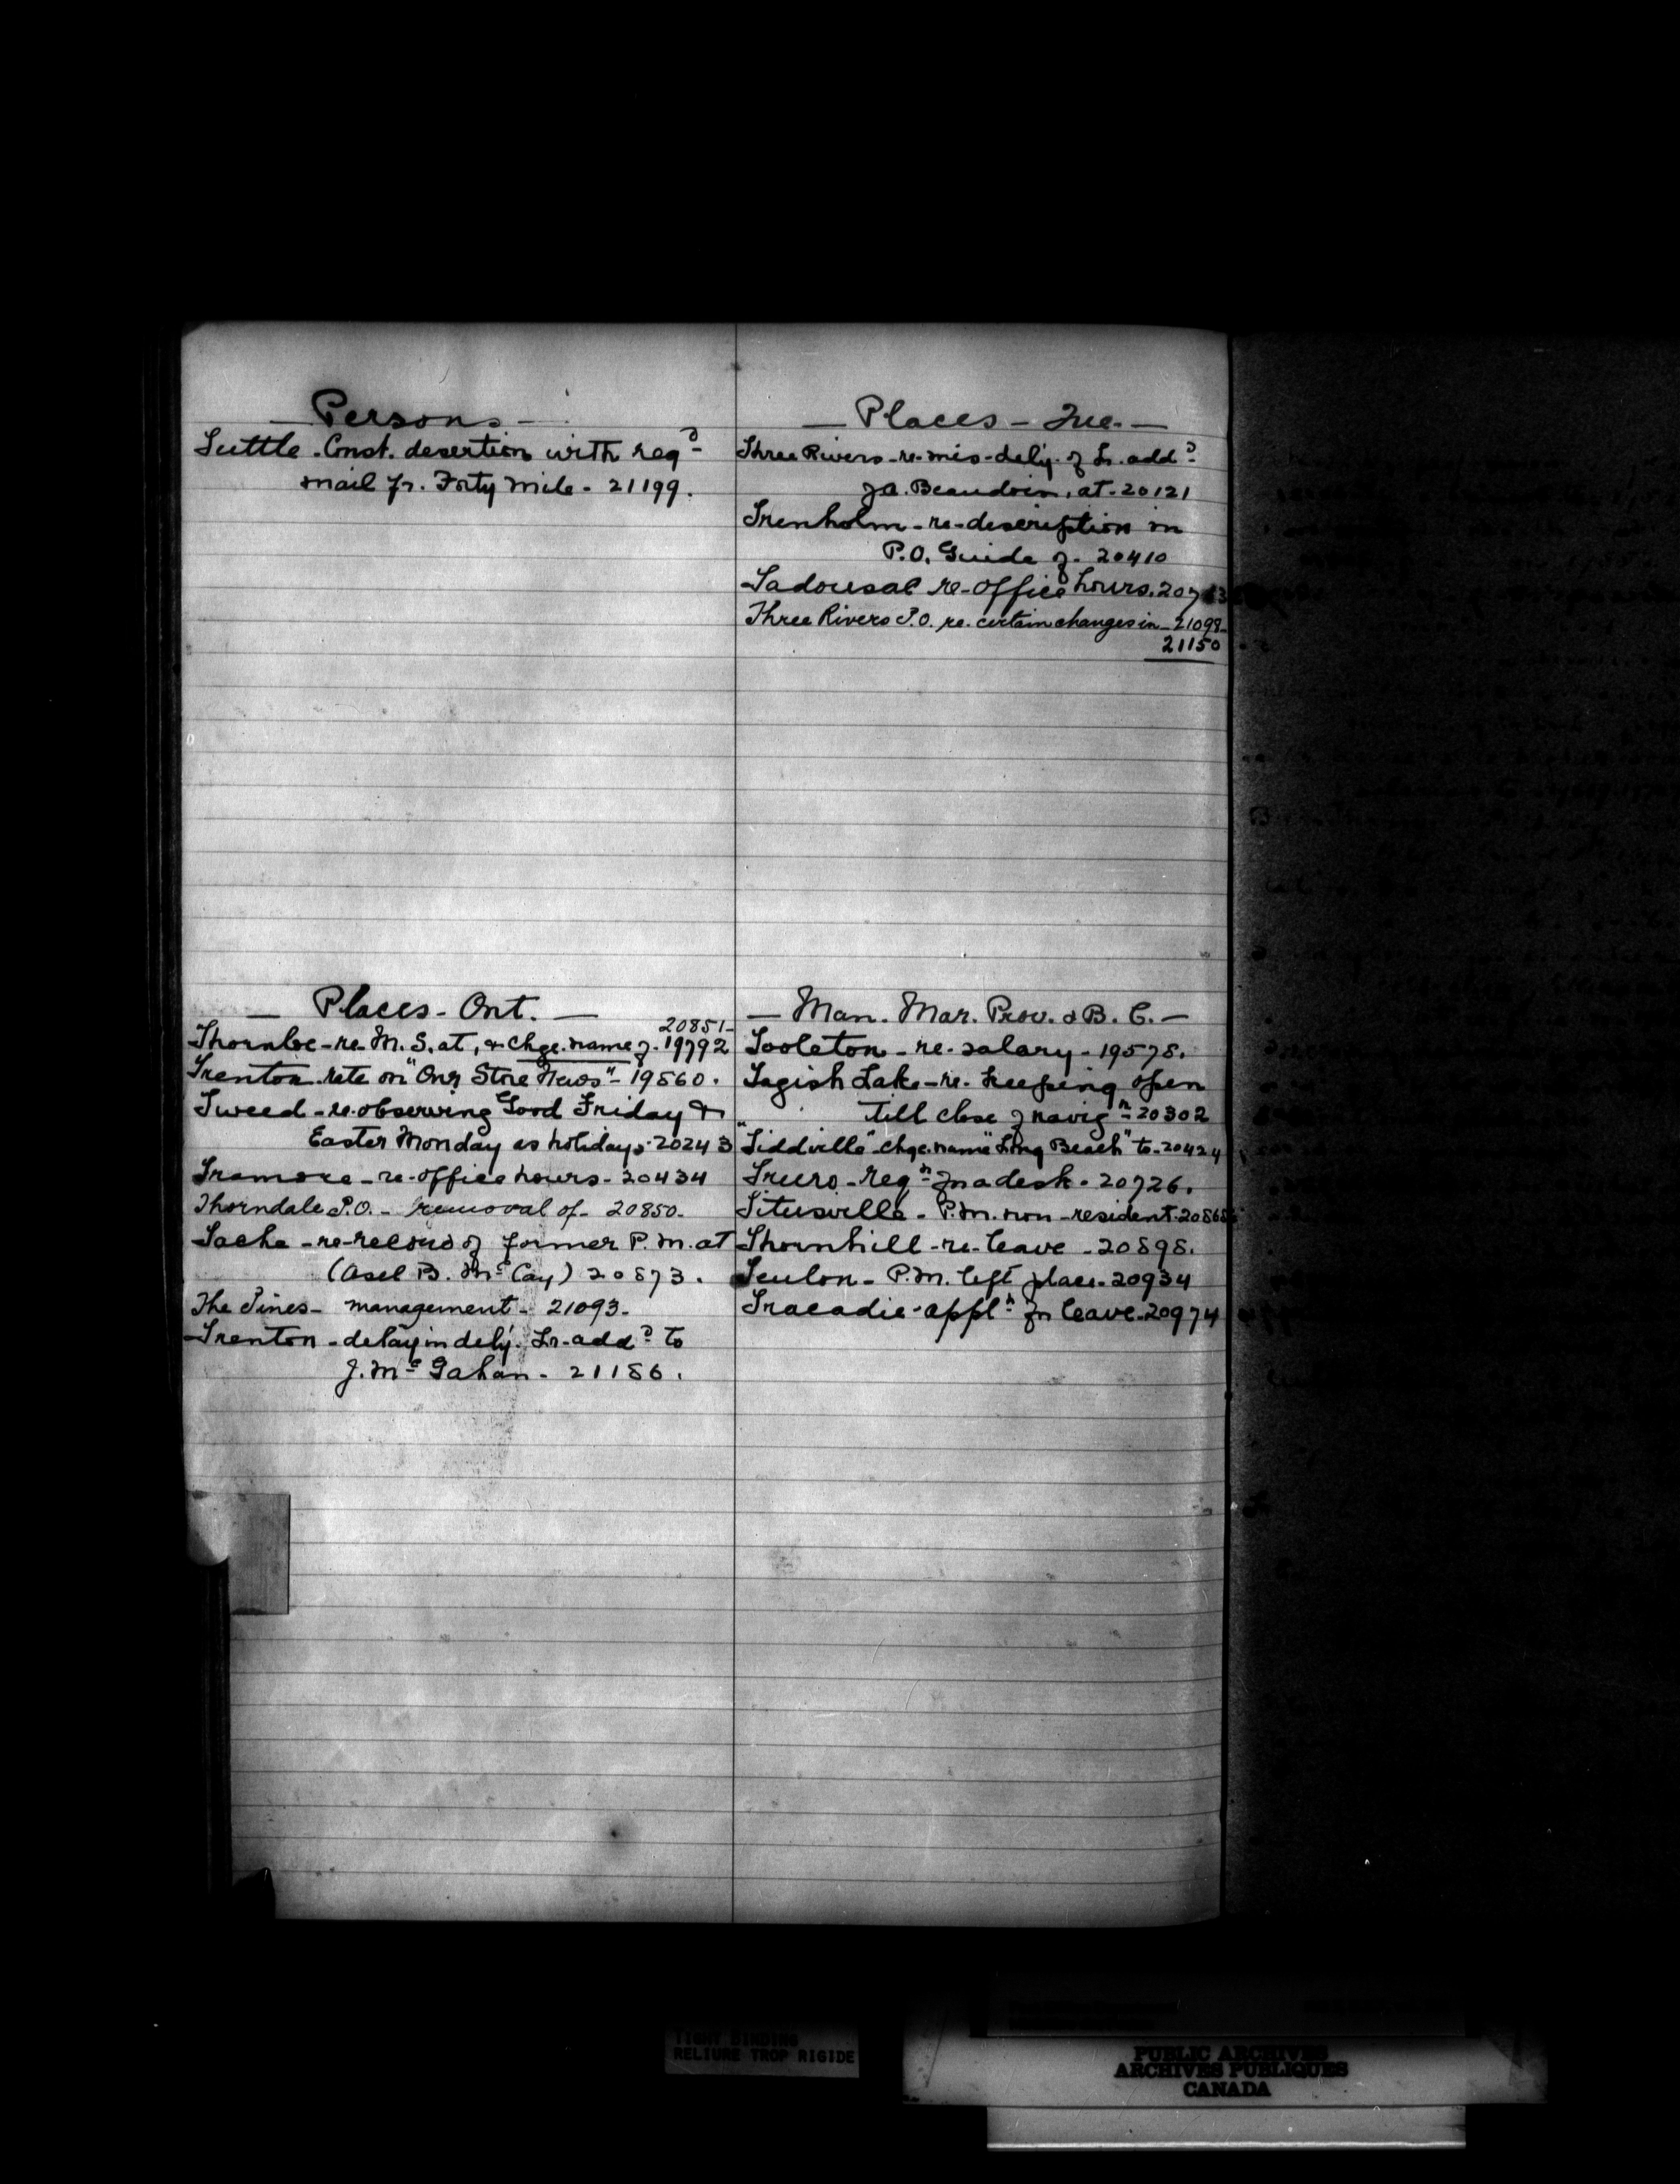 — Persons —
Tuttle - Const. desertion with regd
mail fr. Forty Mile - 21199.
— Places - Que. —
Three Rivers - re - mis-dely. of Lr. addd
Ja. Beaudoin, at - 20121
Trenholm - re - description in
P.O. Guide of - 20410
Tadousac re - office hours. 20713
Three Rivers P.O. re. certain changes in - 21098 -
21150
— Places - Ont. —
20851 -
Thornloe - re - M. S. at, & chge. name of - 19792
Trenton rate on "Our Store News" - 19860.
Tweed - re - observing Good Friday &
Easter Monday as holidays - 20243
Tramore - re - office hours - 20434
Thorndale P.O. - removal of - 20850 -
Tache - re - record of former P.M. at
(Asel B. McCay) 20873.
The Pines - management - 21093 -
Trenton - delay in dely. Lr - addd to
J. McGahan - 21186.
— Man. Mar. Prov. & B. C. —
Tooleton - re - salary - 19578.
Tagish Lake - re - keeping open
till close of navign - 20302
"Tiddville" chge. name "Long Beach" to - 20424
Truro - regn for a desk - 20726.
Titusville - P.M. non - resident - 20868
Thornhill - re - leave - 20898.
Teulon - P.M. left place - 20934
Tracadie - appln for leave - 20974
TIGHT BINDING
RELIURE TROP RIGIDE
PUBLIC ARCHIVES
ARCHIVES PUBLIQUES
CANADA